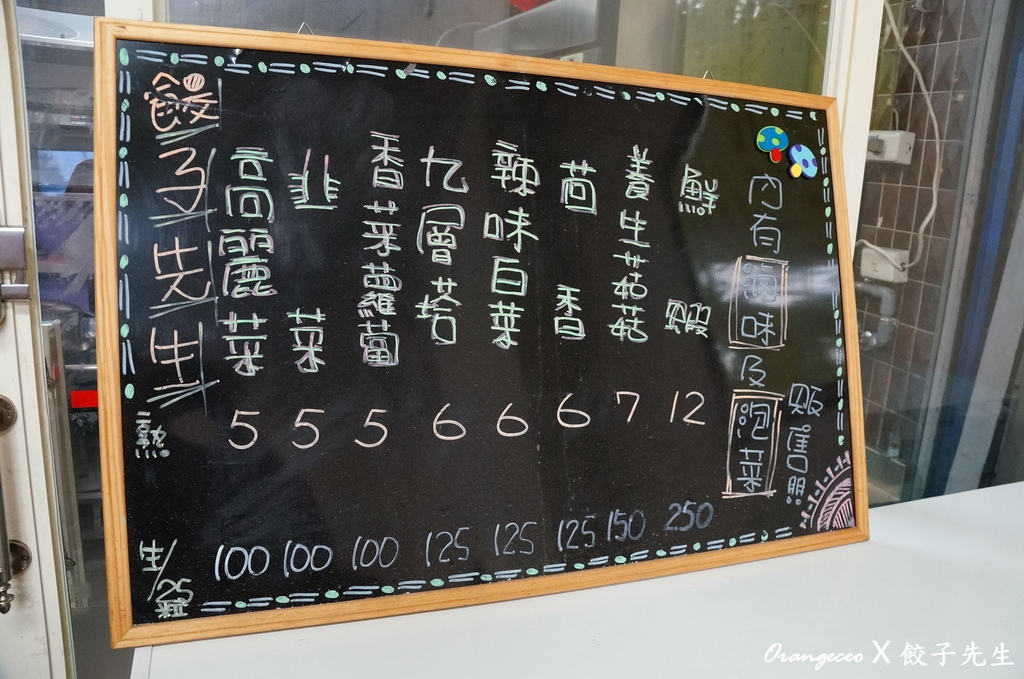 餃子先生
熟
生/25粒
高麗菜 5 100
韭菜 5 100
香菜蘿蔔 5 100
九層塔 6 125
辣味白菜 6 125
茴香 6 125
養生菇菇 7 150
鮮蝦 12 250
內有滷味及泡菜
販售喔
Orangeceo X 餃子先生